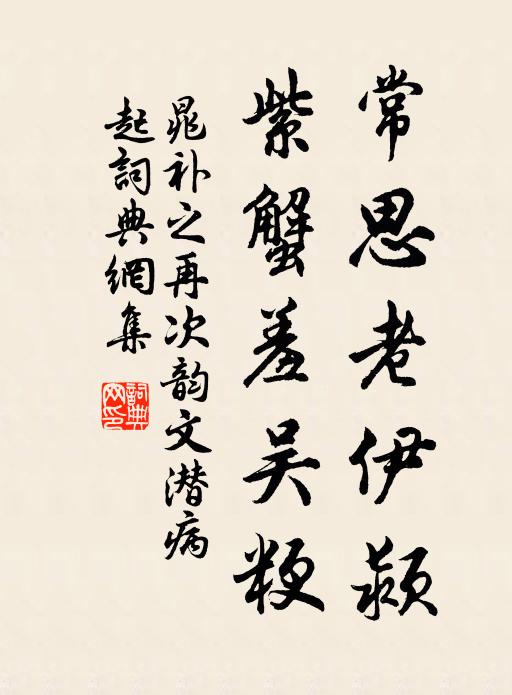 常思老伊颍
紫蟹羞吴粳
晁补之再次韵文潜病
起詞典網集
詞典网印